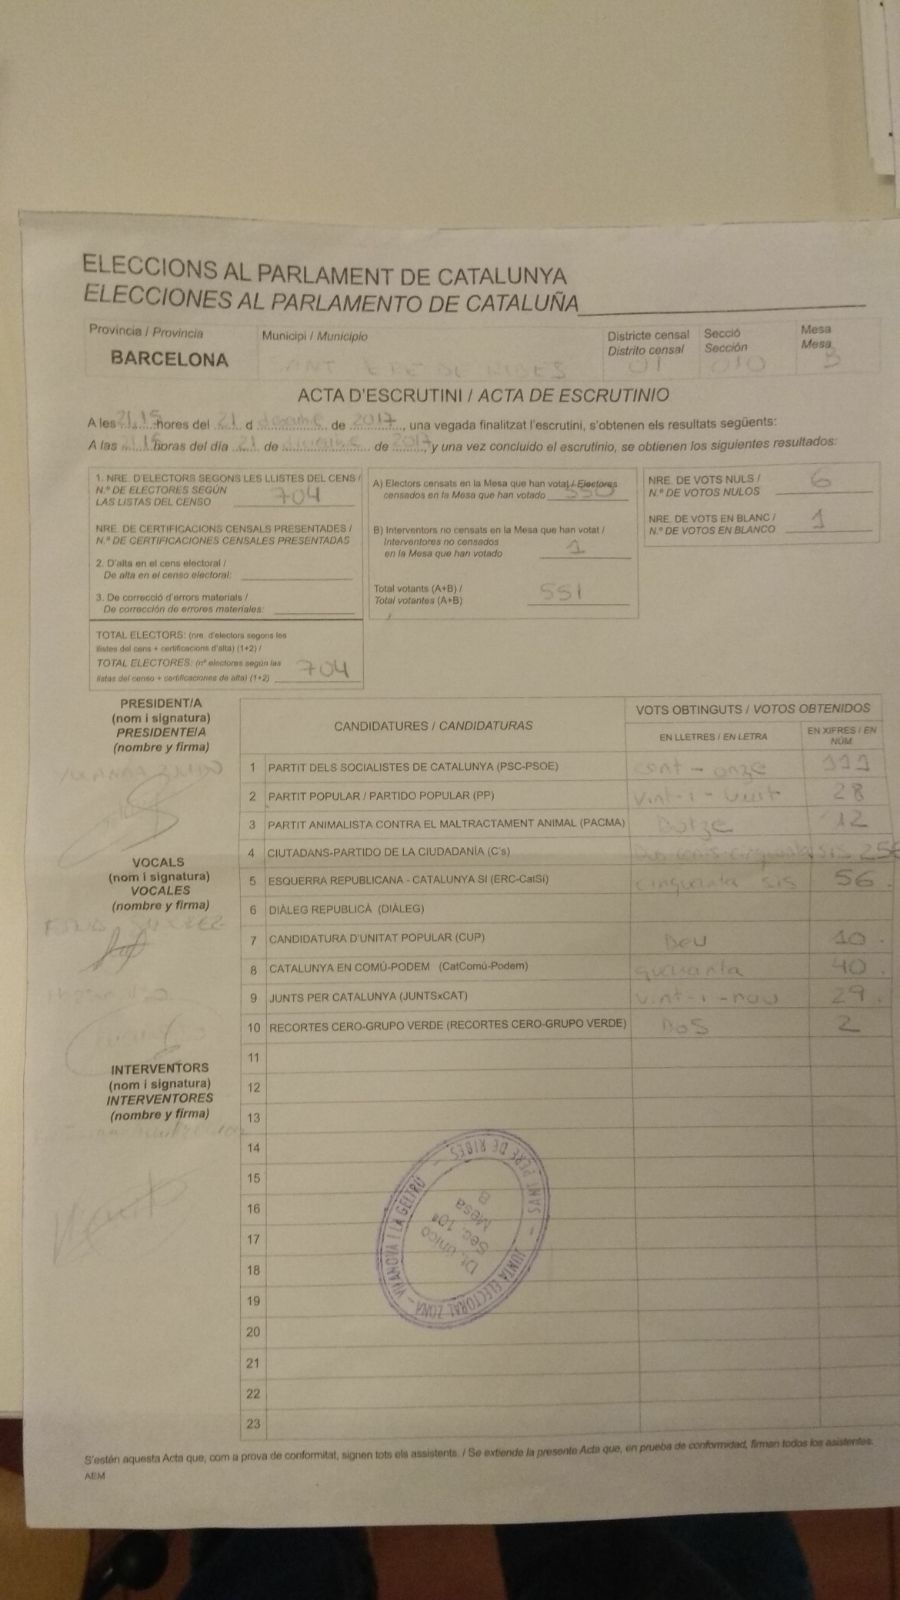 ELECCIONS AL PARLAMENT DE CATALUNYA
ELECCIONES AL PARLAMENTO DE CATALUÑA
Provincia / Provincia
BARCELONA
Municipi / Municipio
SANT PERE DE RIBES
Districte censal
Distrito censal
01
Secció
Sección
010
Mesa
Mesa
B
ACTA D'ESCRUTINI / ACTA DE ESCRUTINIO
A les 21,15 hores del 21 d desembre de 2017, una vegada finalitzat l'escrutini, s'obtenen els resultats següents:
A las 21,15 horas del día 21 de diciembre de 2017, y una vez concluido el escrutinio, se obtienen los siguientes resultados:
1. NRE. D'ELECTORS SEGONS LES LLISTES DEL CENS /
N.º DE ELECTORES SEGÚN
LAS LISTAS DEL CENSO 704
NRE. DE CERTIFICACIONS CENSALS PRESENTADES /
N.º DE CERTIFICACIONES CENSALES PRESENTADAS
2. D'alta en el cens electoral /
De alta en el censo electoral:
3. De correcció d'errors materials /
De corrección de errores materiales:
TOTAL ELECTORS: (nre. d'electors segons les
llistes del cens + certificacions d'alta) (1+2) /
TOTAL ELECTORES: (nº electores según las
listas del censo + certificaciones de alta) (1+2) 704
A) Electors censats en la Mesa que han votat / Electores
censados en la Mesa que han votado 550
B) Interventors no censats en la Mesa que han votat /
Interventores no censados
en la Mesa que han votado 1
Total votants (A+B) /
Total votantes (A+B) 551
NRE. DE VOTS NULS /
N.º DE VOTOS NULOS 6
NRE. DE VOTS EN BLANC /
N.º DE VOTOS EN BLANCO 1
PRESIDENT/A
(nom i signatura)
PRESIDENTE/A
(nombre y firma)
VOCALS
(nom i signatura)
VOCALES
(nombre y firma)
INTERVENTORS
(nom i signatura)
INTERVENTORES
(nombre y firma)
CANDIDATURES / CANDIDATURAS
VOTS OBTINGUTS / VOTOS OBTENIDOS
EN LLETRES / EN LETRA
EN XIFRES / EN NÚM
1 PARTIT DELS SOCIALISTES DE CATALUNYA (PSC-PSOE) cent-onze 111
2 PARTIT POPULAR / PARTIDO POPULAR (PP) vint-i-vuit 28
3 PARTIT ANIMALISTA CONTRA EL MALTRACTAMENT ANIMAL (PACMA) Dotze 12
4 CIUTADANS-PARTIDO DE LA CIUDADANÍA (C's) Dos cents cinquanta sis 256
5 ESQUERRA REPUBLICANA - CATALUNYA SI (ERC-CatSi) cinquanta sis 56
6 DIÀLEG REPUBLICÀ (DIÀLEG)
7 CANDIDATURA D'UNITAT POPULAR (CUP) Deu 10
8 CATALUNYA EN COMÚ-PODEM (CatComú-Podem) quaranta 40
9 JUNTS PER CATALUNYA (JUNTSxCAT) vint-i-nou 29
10 RECORTES CERO-GRUPO VERDE (RECORTES CERO-GRUPO VERDE) DOS 2
11
12
13
14
15
16
17
18
19
20
21
22
23
JUNTA ELECTORAL ZONA - VILANOVA I LA GELTRÚ - SANT PERE DE RIBES -
Dt. único
Sec. 10ª
Mesa
B
S'estén aquesta Acta que, com a prova de conformitat, signen tots els assistents. / Se extiende la presente Acta que, en prueba de conformidad, firman todos los asistentes.
AEM